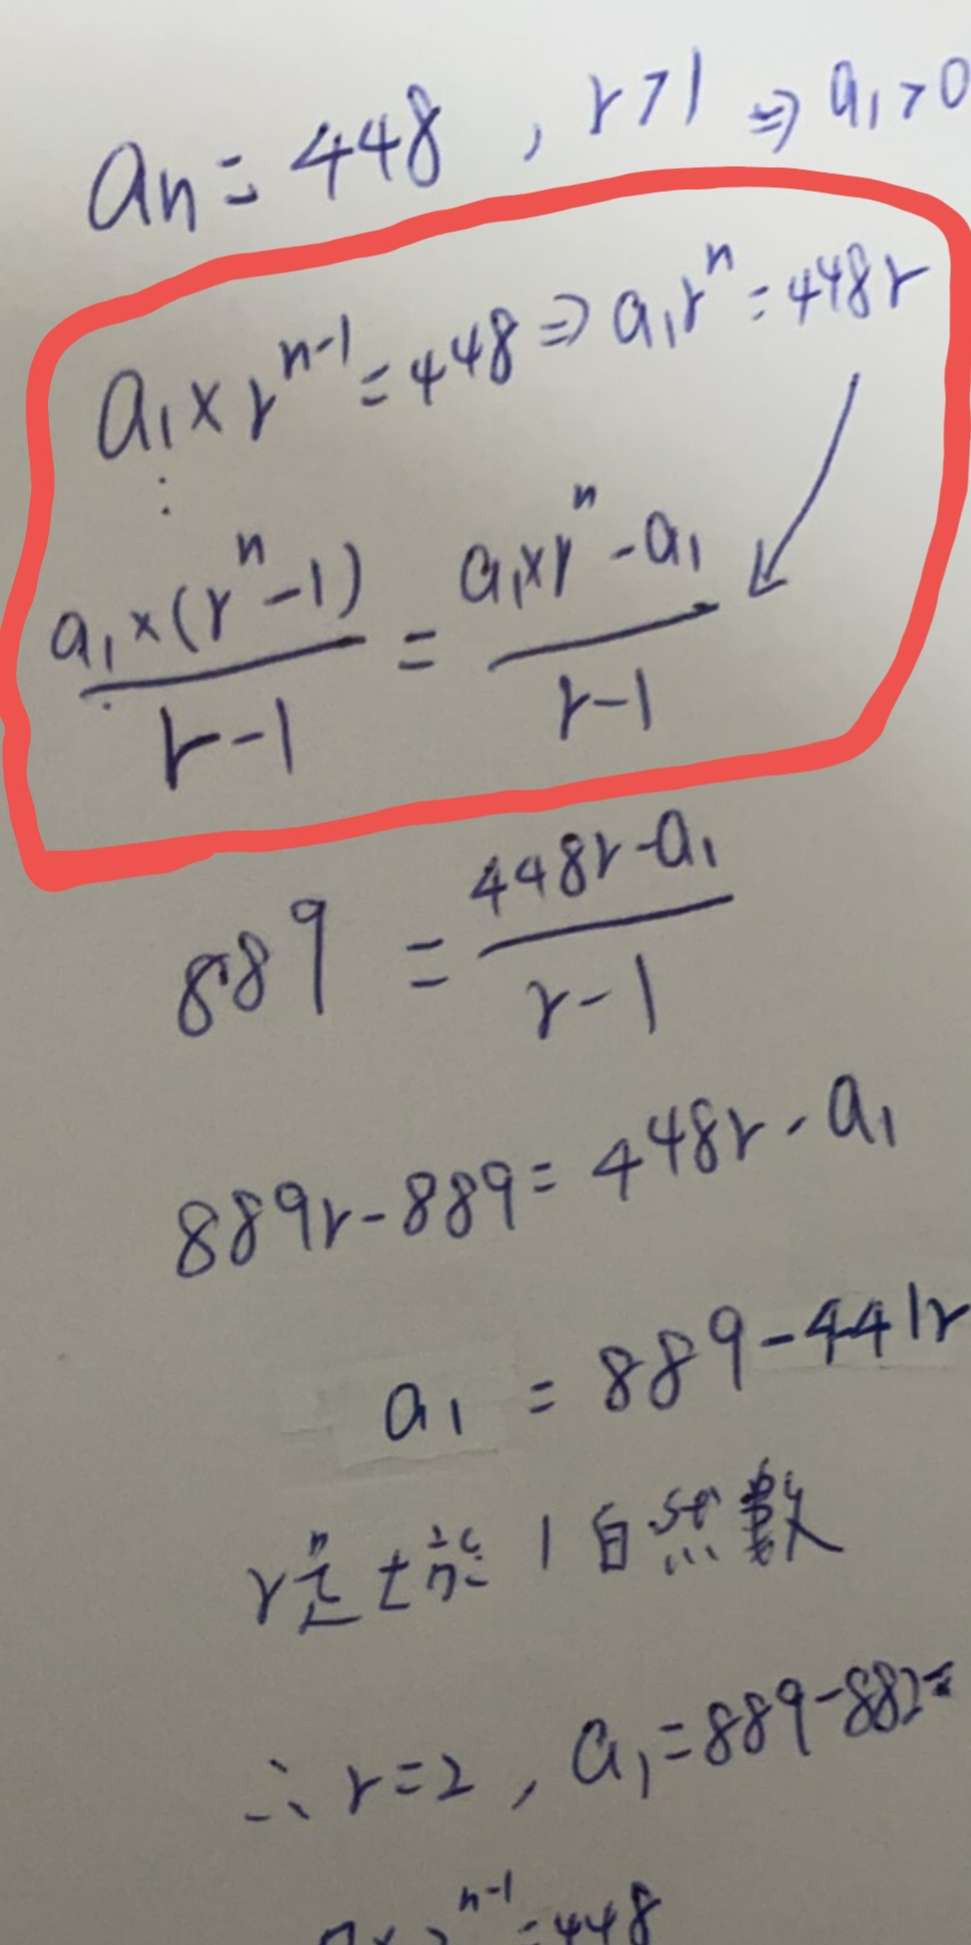 an = 448 , r > 1 ⇒ a₁ > 0
a₁ × r^(n-1) = 448 ⇒ a₁rⁿ = 448r
⋮
a₁×(rⁿ-1)/(r-1) = (a₁×rⁿ-a₁)/(r-1)
889 = (448r-a₁)/(r-1)
889r - 889 = 448r - a₁
a₁ = 889 - 441r
r是大於1自然數
∴ r=2 , a₁=889-882=
2^(n-1) = 448